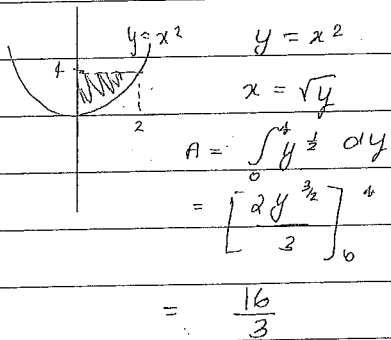 y = x²
4
2
y = x²
x = √y
A = ∫₀⁴ y^½ dy
= [2y^(3/2) / 3]₀⁴
= 16/3